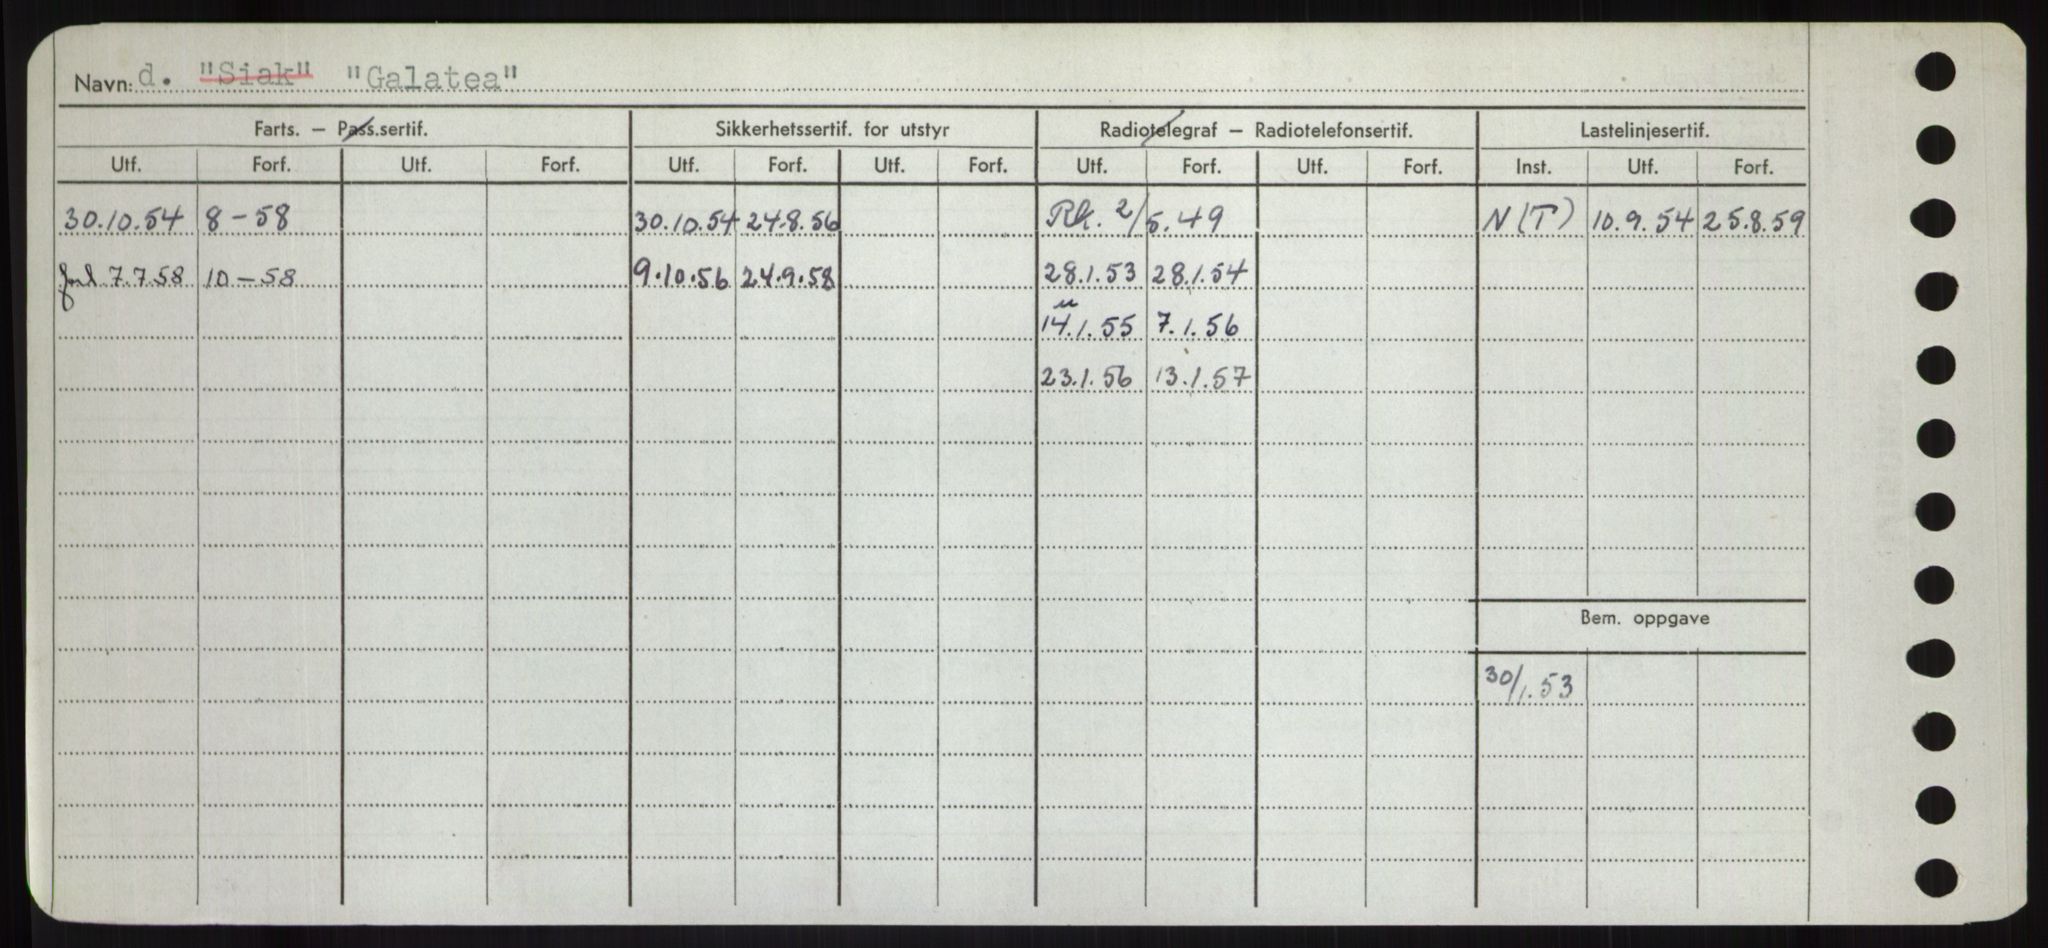 Navn: d. "Siak" "Galatea"
Farts. – Pass.sertif. Sikkerhetssertif. for utstyr Radiotelegraf – Radiotelefonsertif. Lastelinjesertif.
Utf. Forf. Utf. Forf. Utf. Forf. Utf. Forf. Utf. Forf. Utf. Forf. Inst. Utf. Forf.
30.10.54 8-58 30.10.54 24.8.56 2/5.49 N(T) 10.9.54 25.8.59
7.7.58 10-58 9.10.56 24.9.58 28.1.53 28.1.54
14.1.55 7.1.56
23.1.56 13.1.57
Bem. oppgave
30/1.53